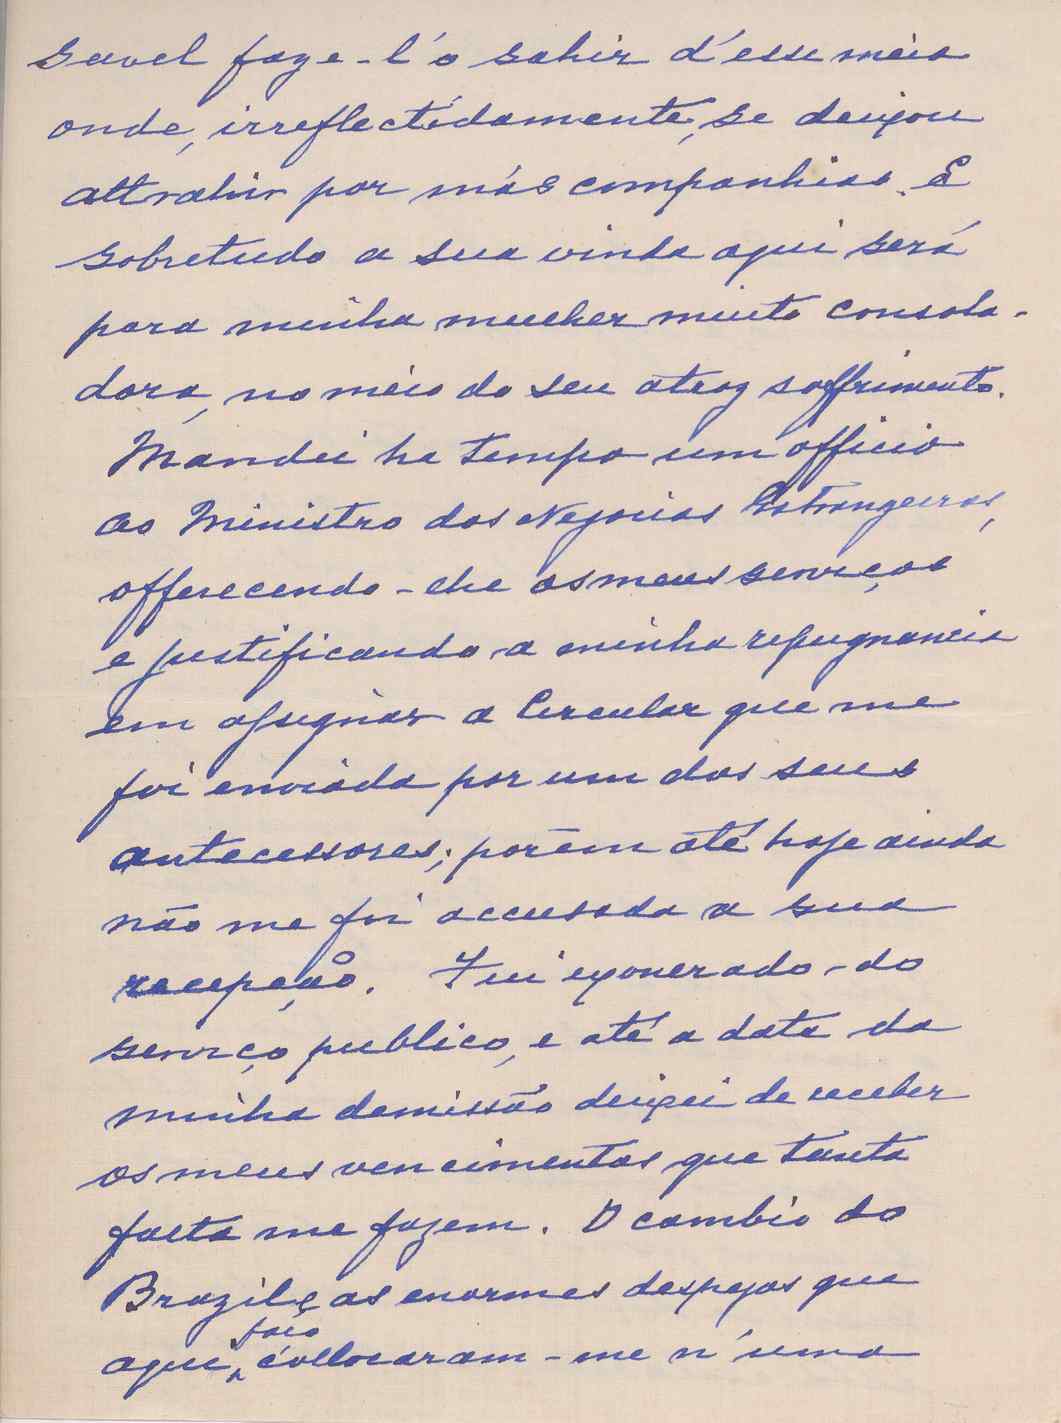 savel faze-l'o sahir d'esse meio
onde, irreflectidamente, se deixou
attrahir por más companhias. E
sobretudo a sua vinda aqui será
para minha mulher muito consola-
dora, no meio do seu atroz soffrimento.
Mandei ha tempo um officio
ao Ministro dos Negocios Estrangeiros,
offerecendo-lhe os meus serviços
e justificando a minha repugnancia
em assignar a Circular que me
foi enviada por um dos seus
antecessores; porém até hoje ainda
não me foi accusada a sua
recepção. Fui exonerado do
serviço publico, e até a data da
minha demissão deixei de receber
os meus vencimentos que tanta
falta me fazem. O cambio do
Brazil e as enormes despezas que
aqui faço collocaram-me n'uma